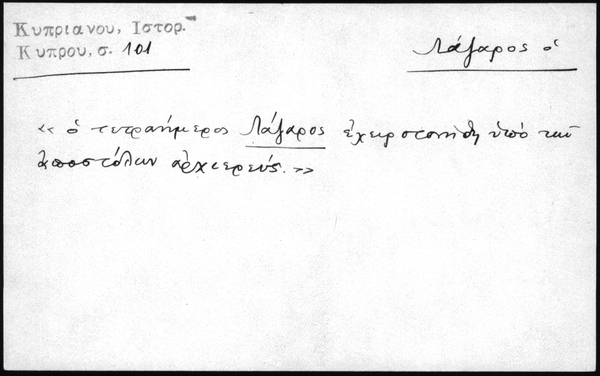 Κυπριανου, Ιστορ.
Κυπρου, σ. 101
Λάζαρος ὁ
« ὁ τετραήμερος Λάζαρος ἐχειροτονήθη ὑπὸ τῶν
ἀποστόλων ἀρχιερεύς. »